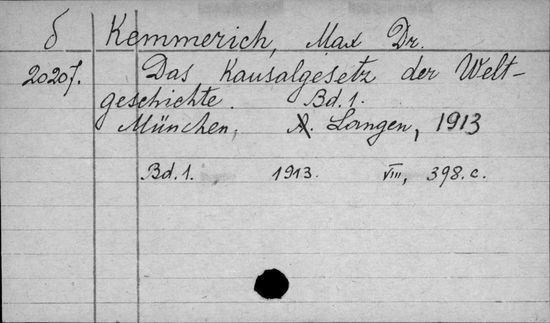 δ Kemmerich, Max Dr.
20207. Das Kausalgesetz der Welt-
geschichte. Bd. 1.
München, A. Langen, 1913
Bd. 1. 1913. VIII, 398. c.